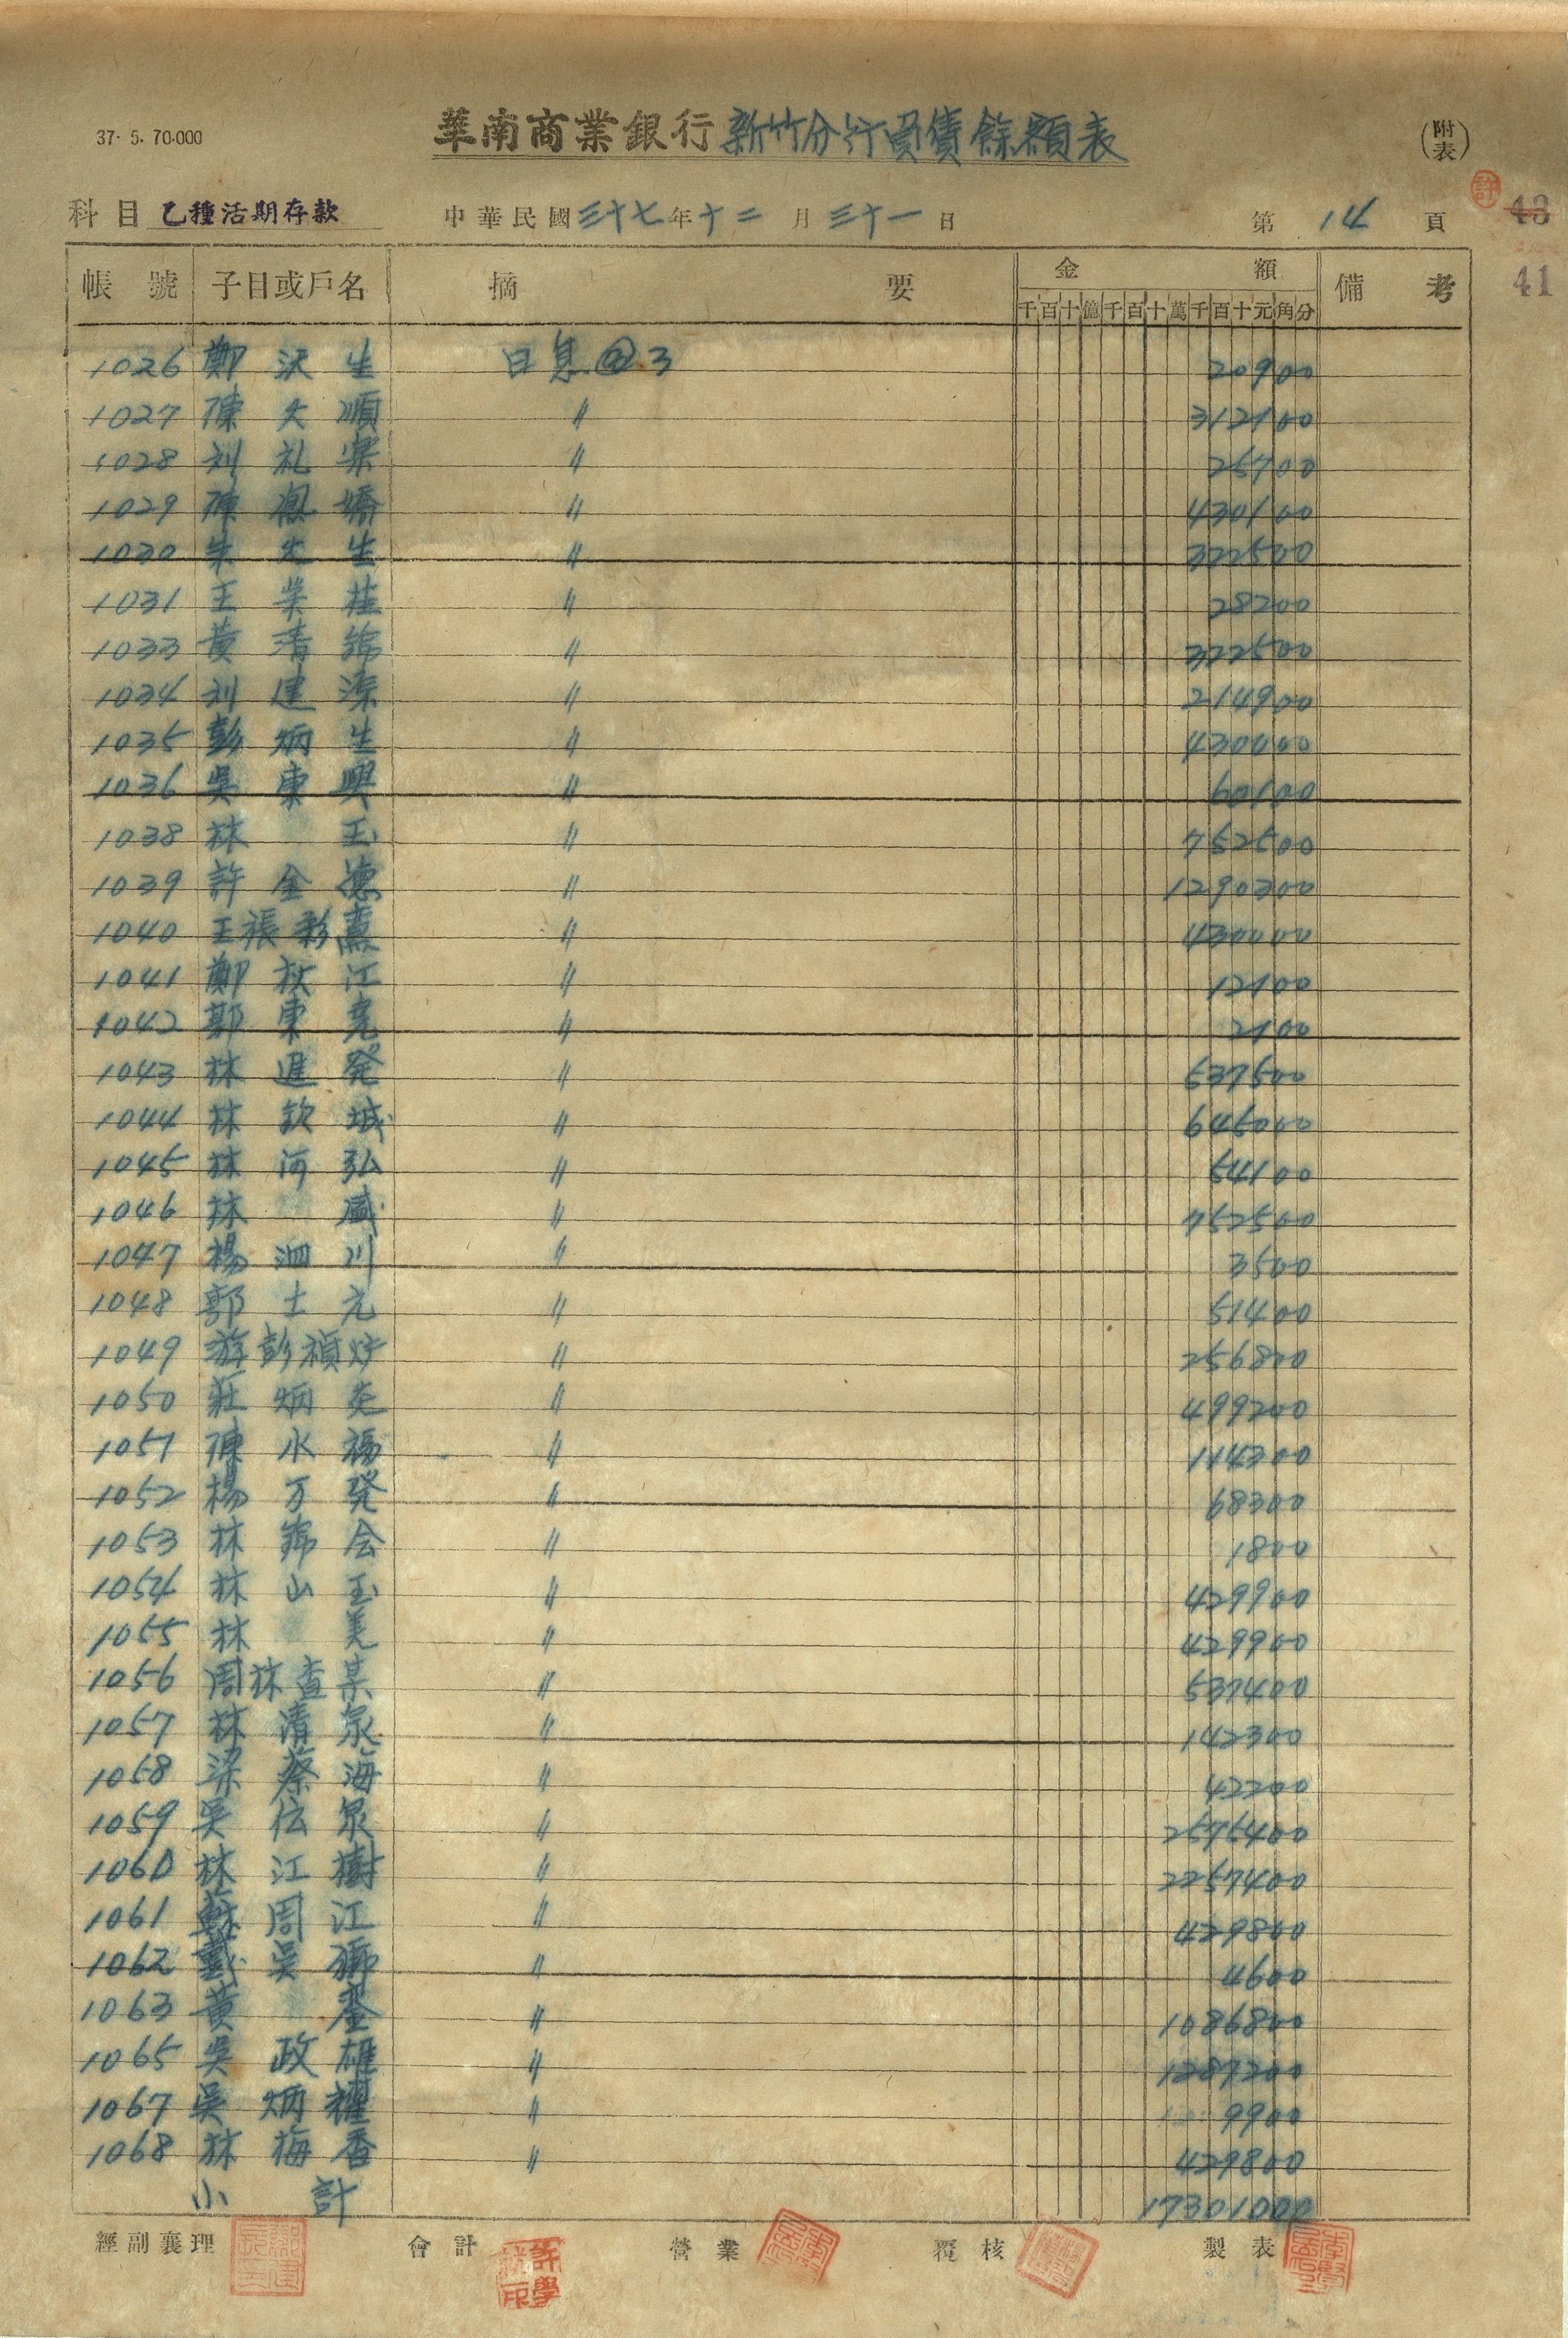 37. 5. 70.000
華南商業銀行新竹分行員債餘額表
(附表)
科目 乙種活期存款 中華民國三十七年十二月三十一日 第14頁
許 43
41
帳號 子目或戶名 摘要 金額 備考
千百十億千百十萬千百十元角分
1026 鄭沢生 日息@3 20900
1027 陳大順 〃 312100
1028 刘礼 〃 25700
1029 陳鳳嬌 〃 430100
1030 朱先生 〃 322500
1031 王柴桂 〃 28200
1033 黃清錦 〃 322500
1034 刘建 〃 214900
1035 彭炳生 〃 430400
1036 吳東興 〃 60100
1038 林玉 〃 752500
1039 許金德 〃 1290300
1040 王張彩 〃 430000
1041 鄭秋江 〃 12100
1042 郭東堯 〃 2100
1043 林進発 〃 537500
1044 林欽城 〃 645000
1045 林河弘 〃 54100
1046 林盛 〃 752500
1047 楊泗川 〃 3500
1048 郭士元 〃 51400
1049 游彭禎 〃 256800
1050 莊炳 〃 499200
1051 陳水福 〃 114300
1052 楊万発 〃 68300
1053 林錦会 〃 1800
1054 林山玉 〃 429900
1055 林美 〃 429900
1056 周林查某 〃 537400
1057 林清泉 〃 142300
1058 梁蔡海 〃 42200
1059 吳伝泉 〃 2575400
1060 林江樹 〃 2257400
1061 蘇周江 〃 426800
1062 戴吳 〃 4600
1063 黃 〃 1086800
1065 吳政雄 〃 1287200
1067 吳炳耀 〃 9900
1068 林梅香 〃 429800
小計 17301000
經副襄理 會計 營業 覆核 製表